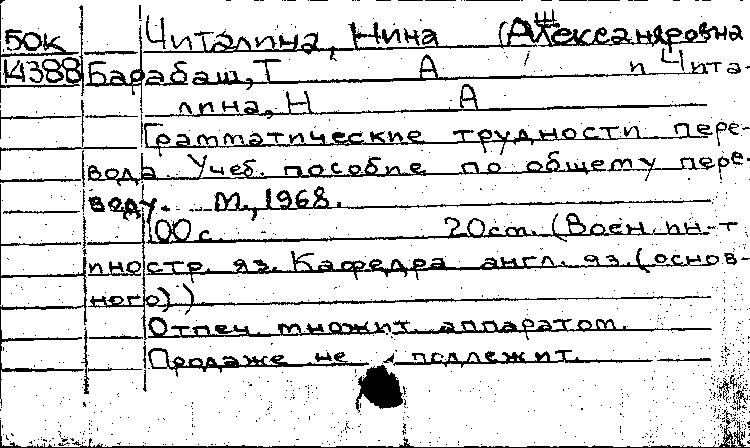 50к Читалина, Нина (Александровна
14388 Барабаш, Т А и Чита-
лина, Н А
Грамматические трудности пере-
вода. Учеб. пособие по общему пере-
воду. М., 1968.
100 с. 20 см. (Воен. ин-т
иностр. яз. Кафедра англ. яз. (основ-
ного))
Отпеч. множит. аппаратом.
Продаже не подлежит.